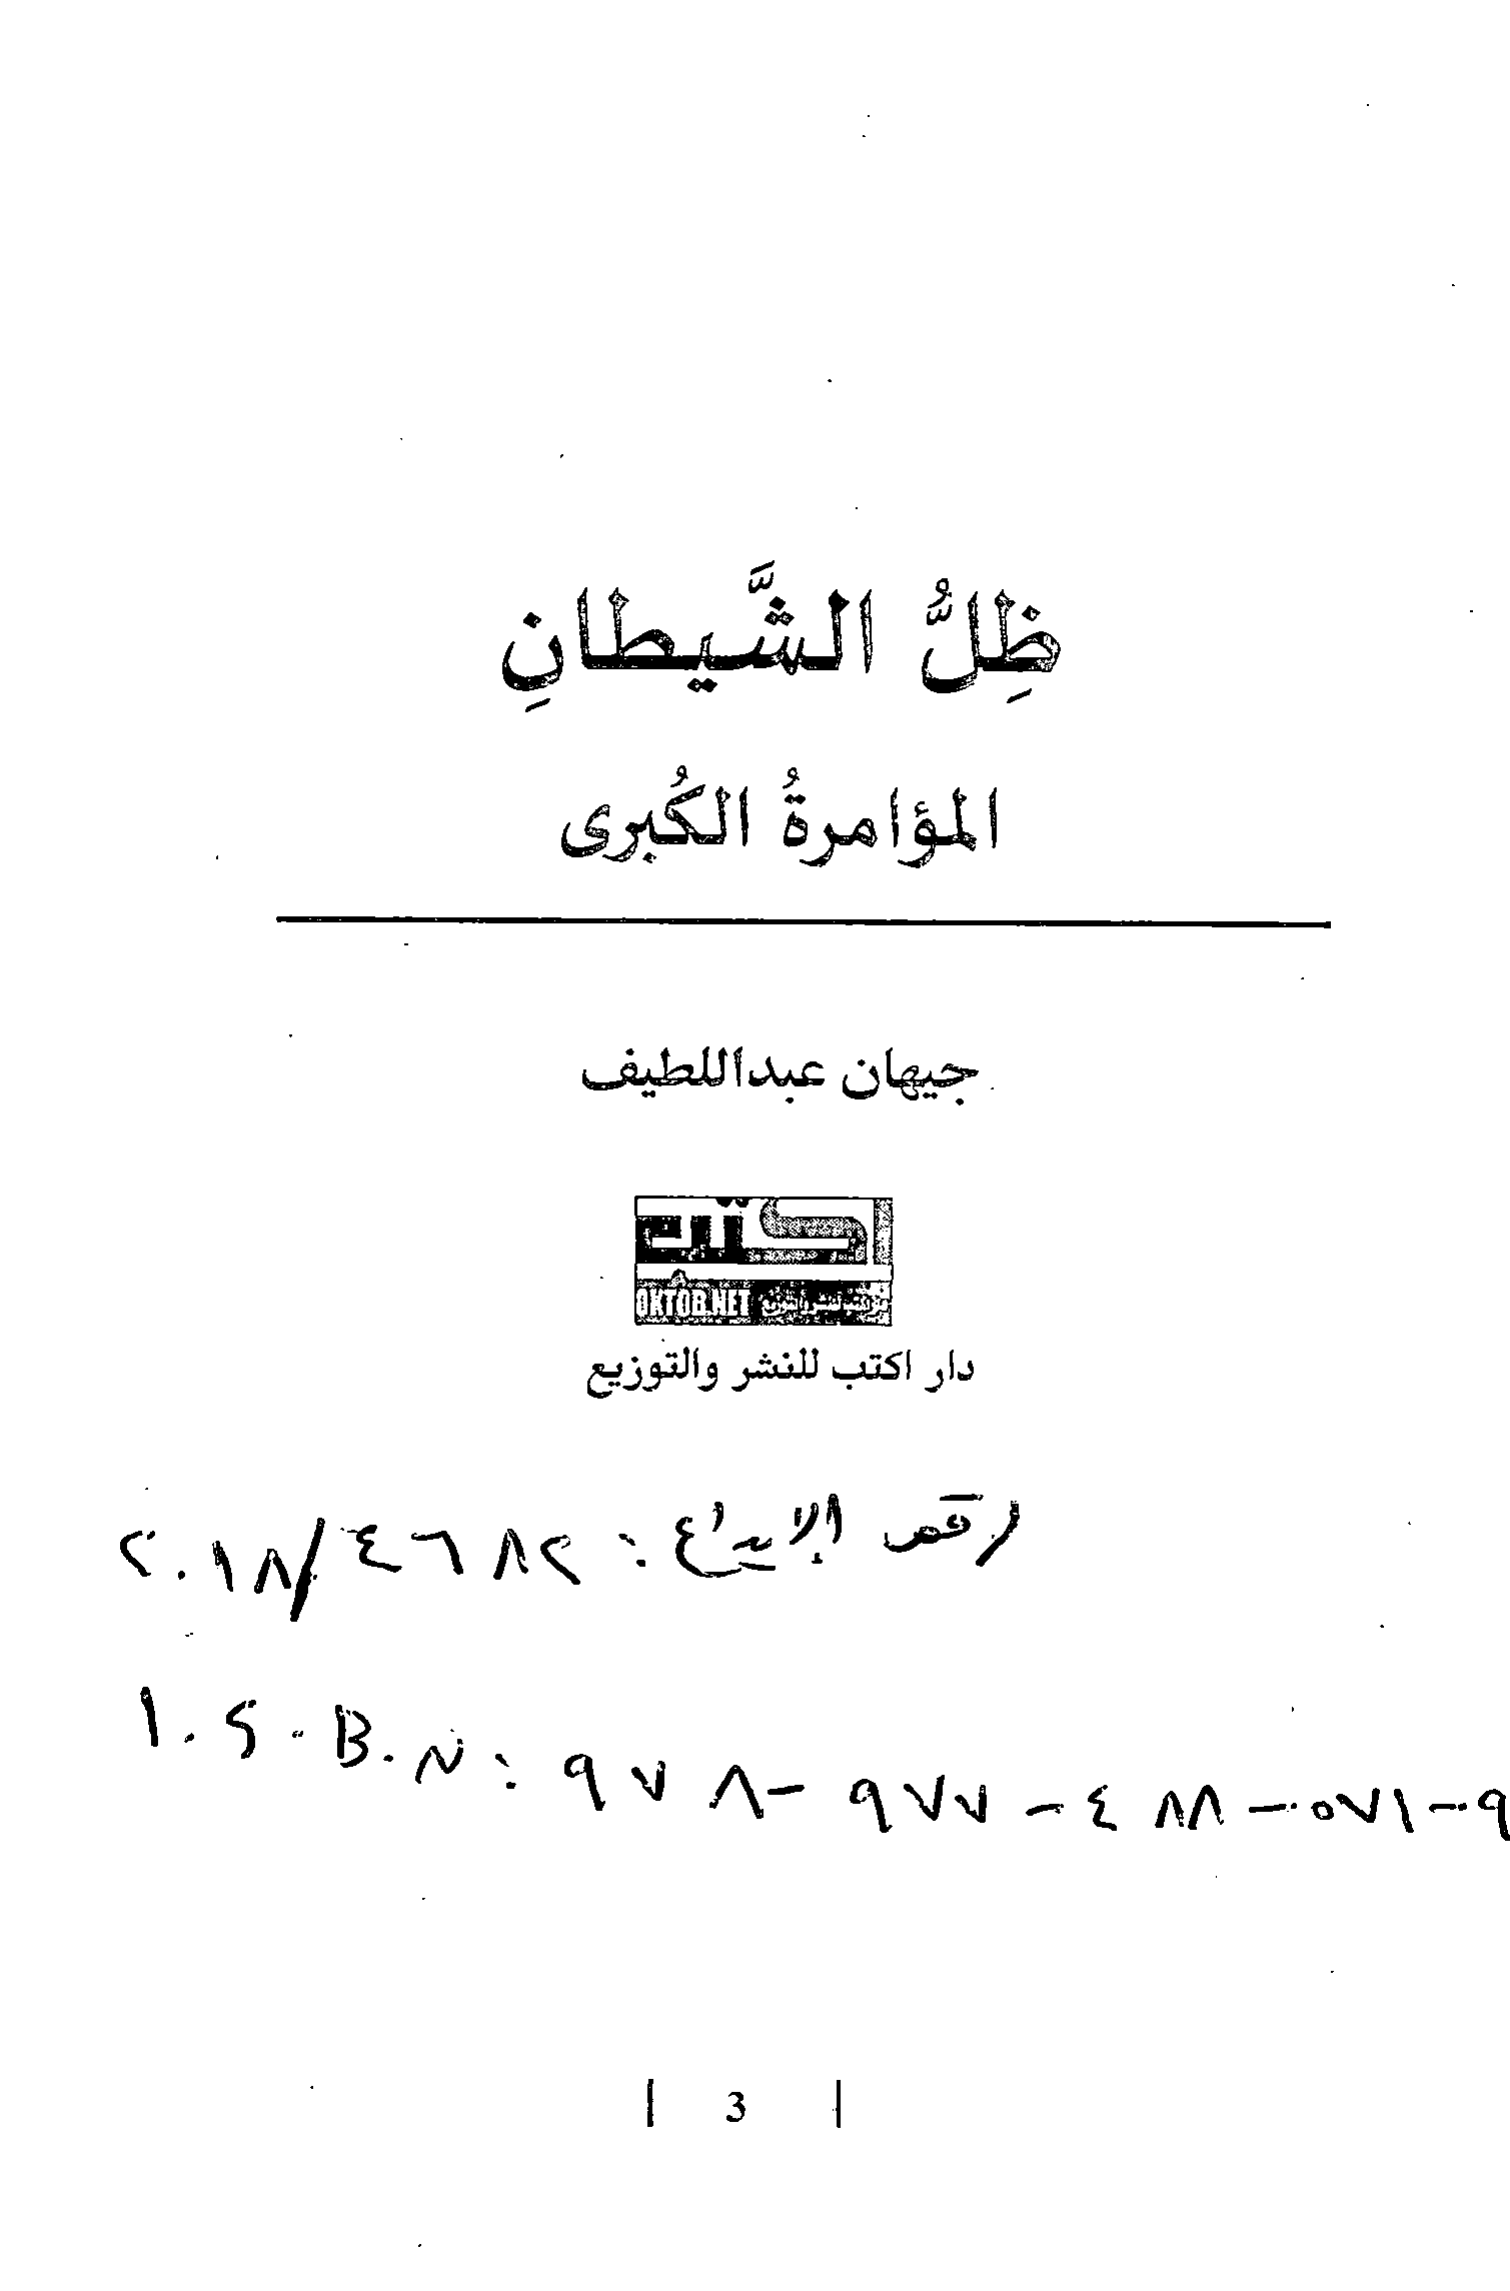 ظِلُّ الشَّيطانِ
المؤامرةُ الكُبرى
جيهان عبداللطيف
اكتب
OKTOB.NET
دار اكتب للنشر والتوزيع
رقم الإيداع : ٢٠١٨/٤٦٨٢
I.S.B.N : ٩٧٨-٩٧٧-٤٨٨-٥٧١-٩
| 3 |